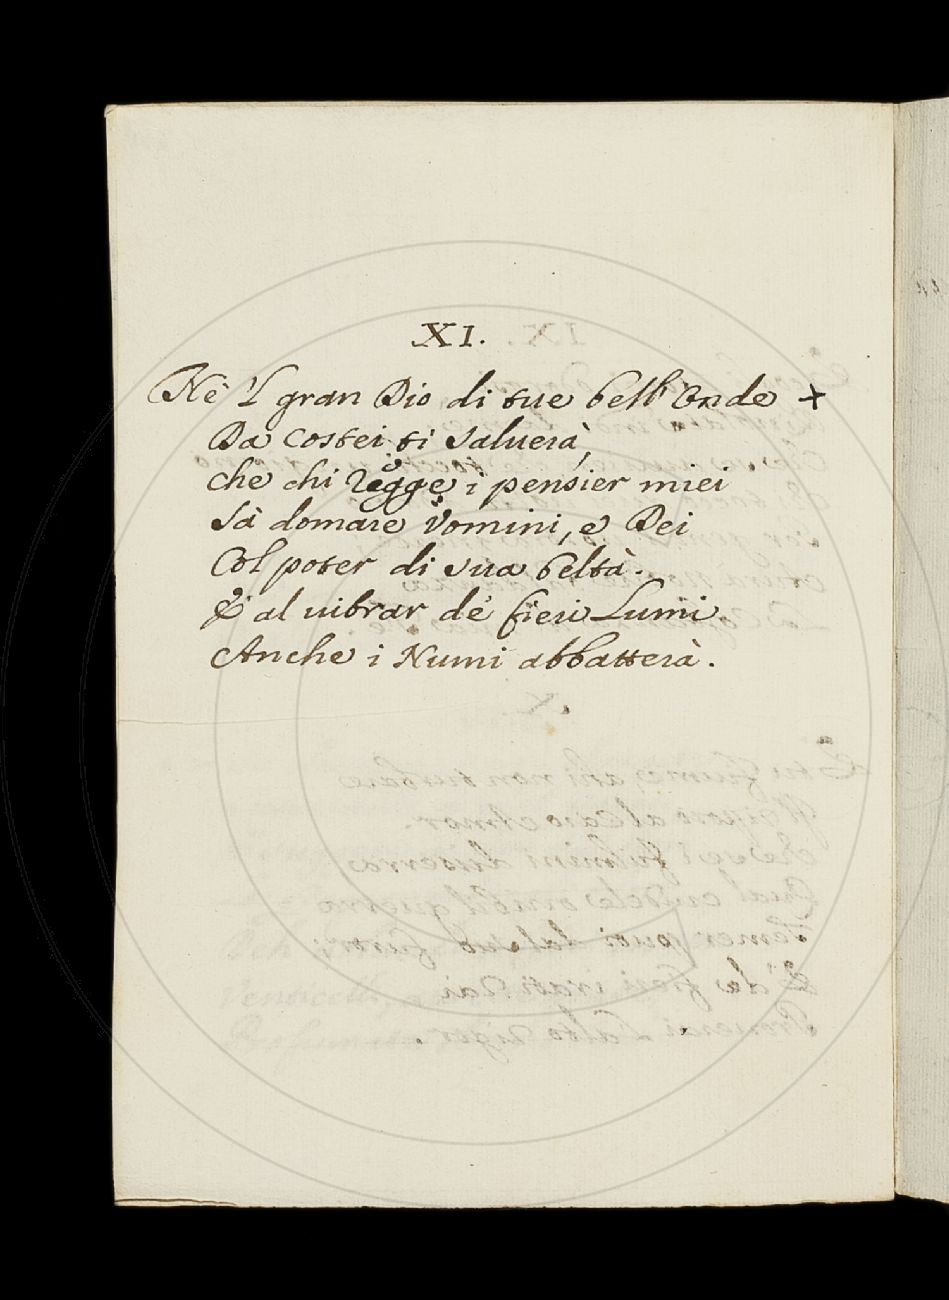 XI.
Nè 'l gran Dio di tue bell'Onde +
Da costei ti saluerà,
che chi regge i pensier miei
Sà domare Vomini, e Dei
Col poter di sua beltà.
E al uibrar de' fieri Lumi
Anche i Numi abbatterà.